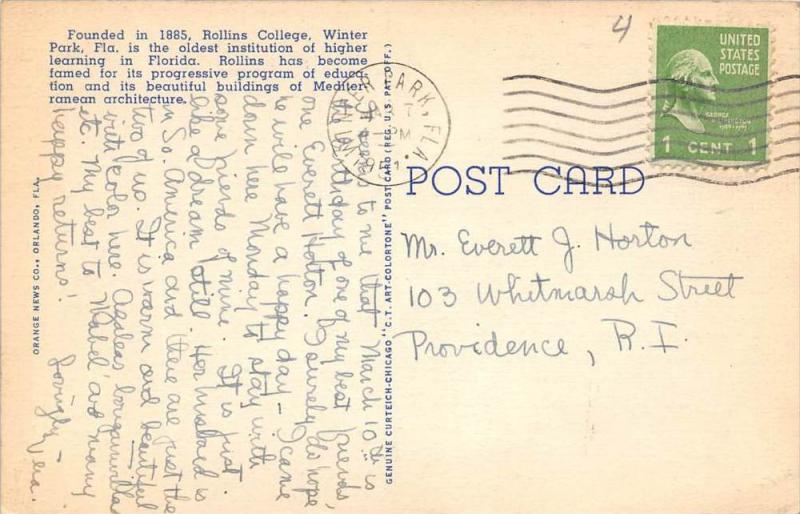 Founded in 1885, Rollins College, Winter
Park, Fla. is the oldest institution of higher
learning in Florida. Rollins has become
famed for its progressive program of educa-
tion and its beautiful buildings of Mediter-
ranean architecture.
It seems to me that March 10th is
the birthday of one of my best friends,
one Everett Horton. I surely do hope
he will have a happy day – I came
down here Monday to stay with
some friends of mine. It is just
like a dream still. Her husband is
in So. America and there are just the
two of us. It is warm and beautiful
with color here. Azaleas, bougainvillea
etc. My best to Mabel and many
happy returns!
Lovingly –
ORANGE NEWS CO., ORLANDO, FLA.
GENUINE CURTEICH-CHICAGO "C.T. ART-COLORTONE" POST CARD (REG. U.S. PAT. OFF.)
4
PARK, FLA.
7
PM
1951
UNITED
STATES
POSTAGE
GEORGE
WASHINGTON
1 CENT 1
POST CARD
Mr. Everett J. Horton
103 Whitmarsh Street
Providence, R.I.